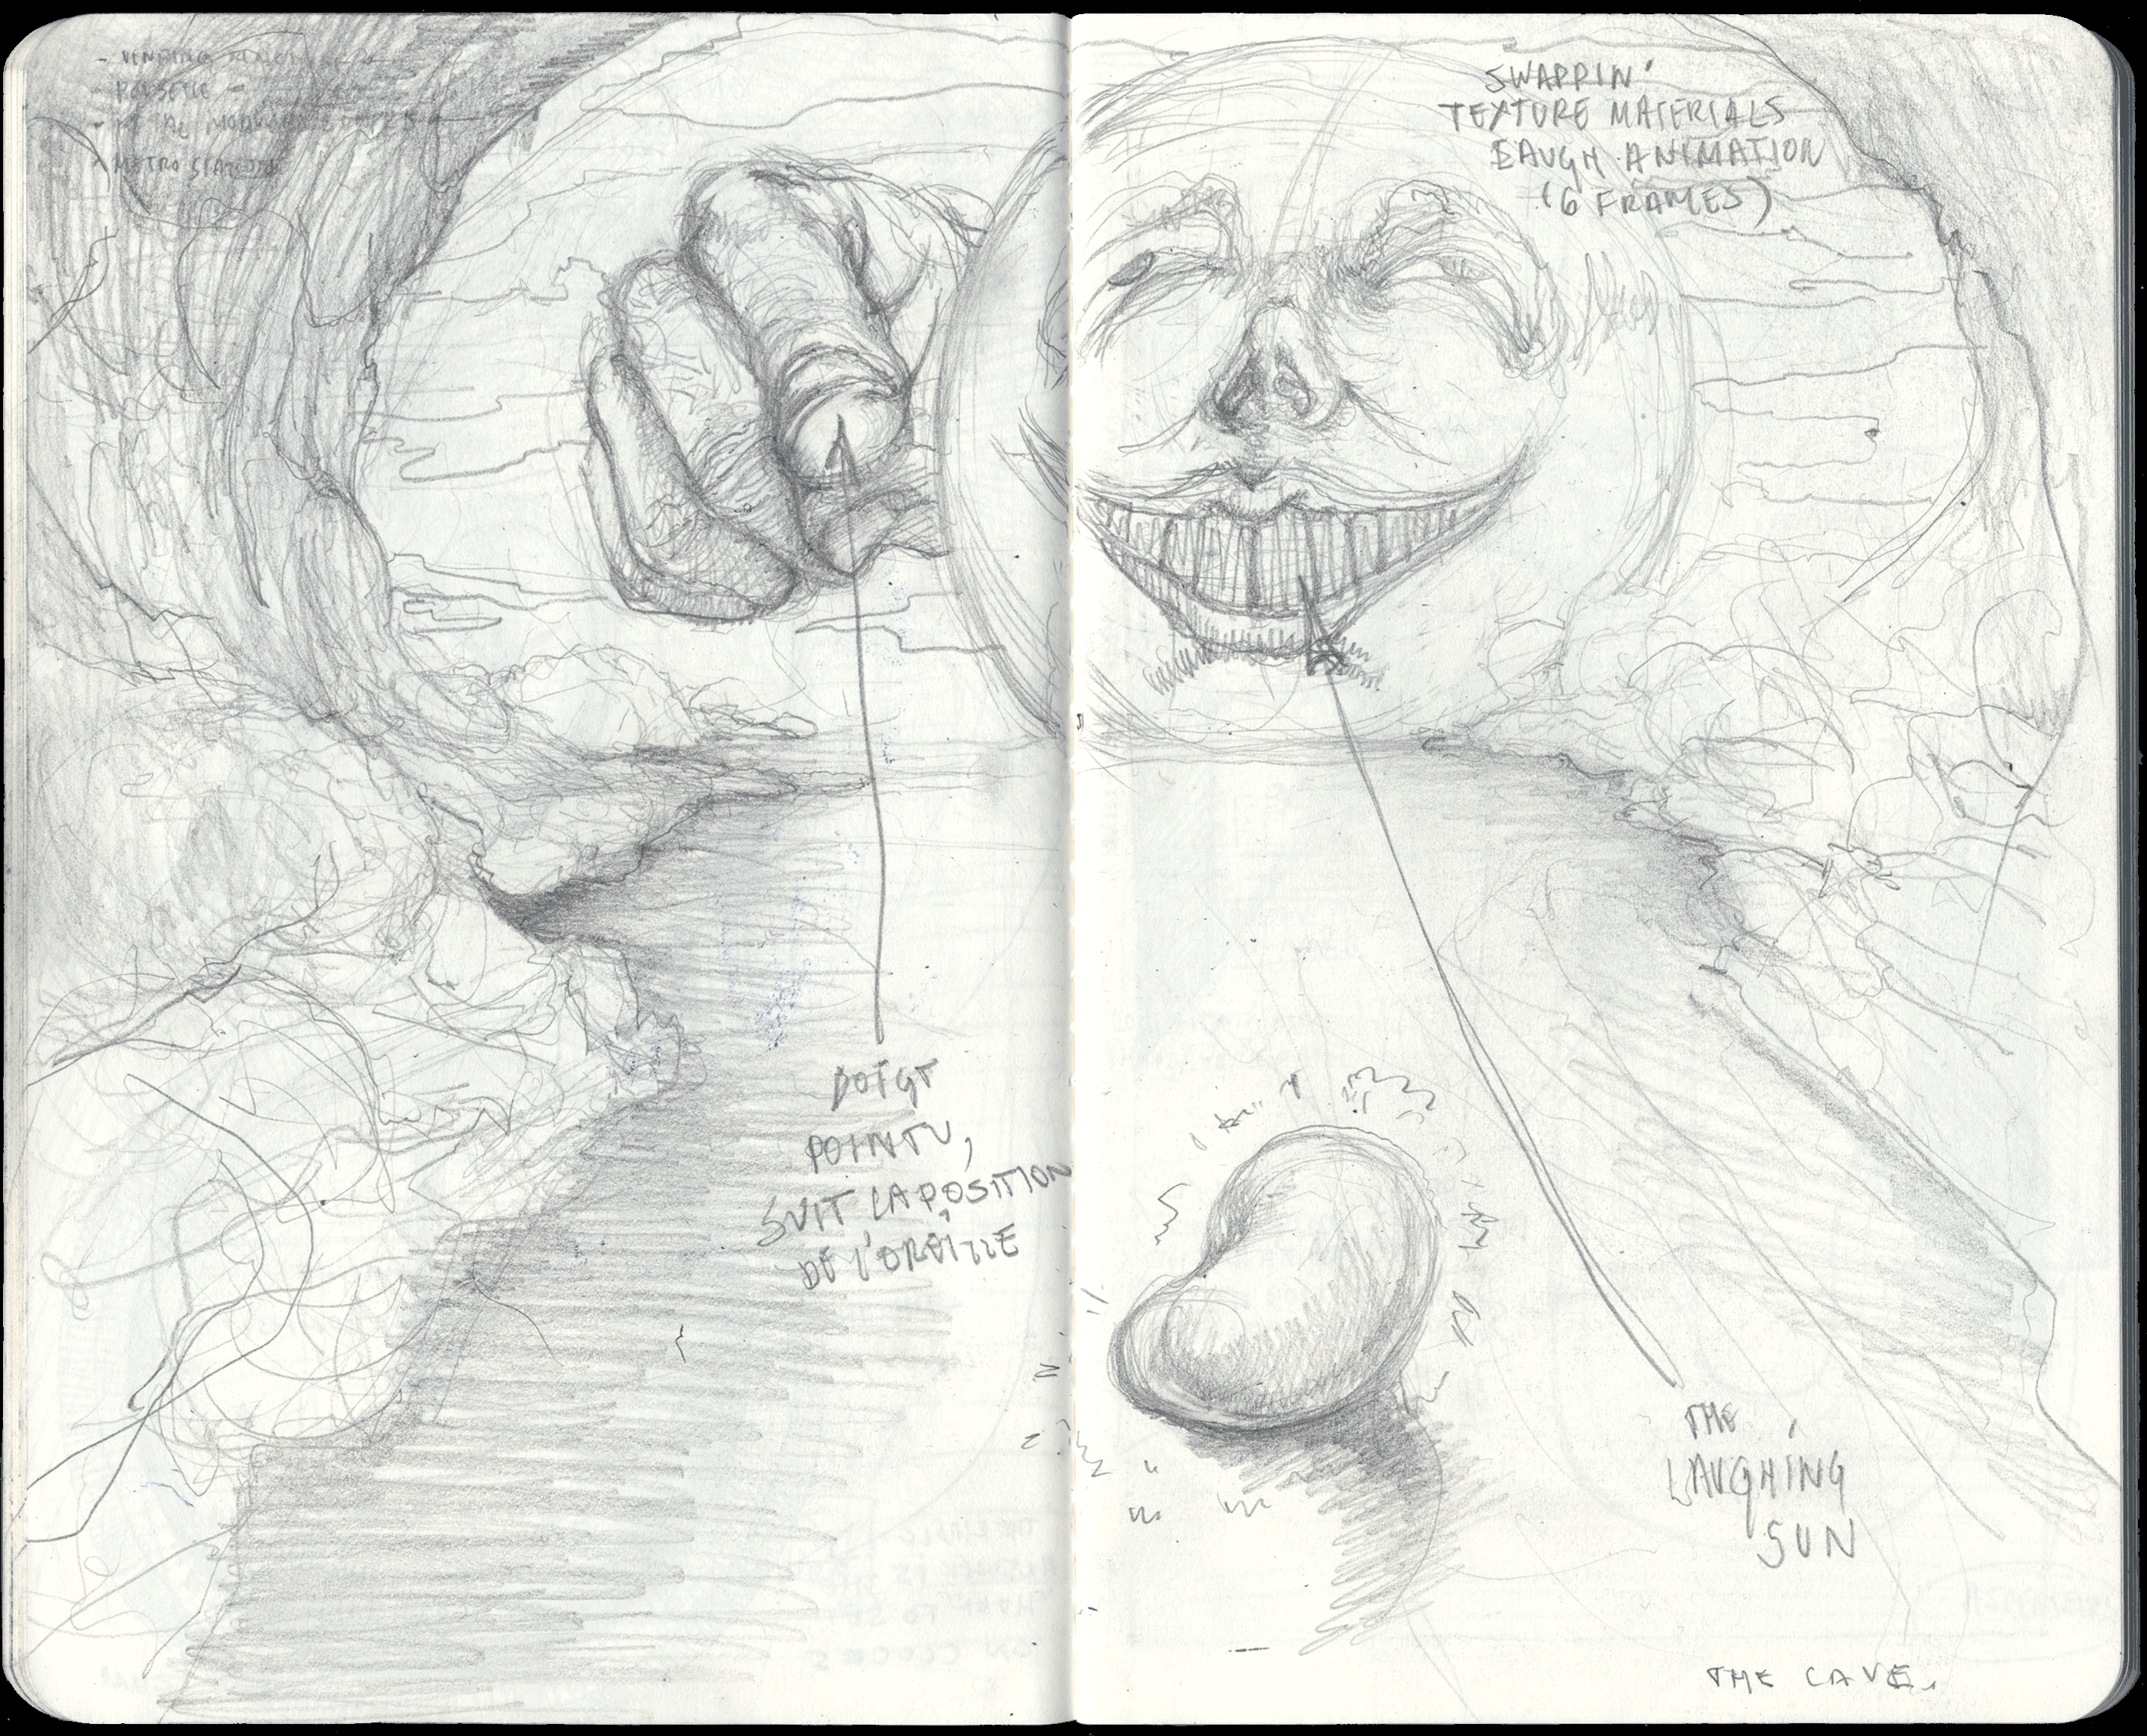 - VENDING
- POUSETTE -
- METRO STATION
SWAPPIN'
TEXTURE MATERIALS
LAUGH ANIMATION
(6 FRAMES)
DOIGT
POINTU,
SUIT LA POSITION
DE L'OREILLE
THE
LAUGHING
SUN
THE CAVE.